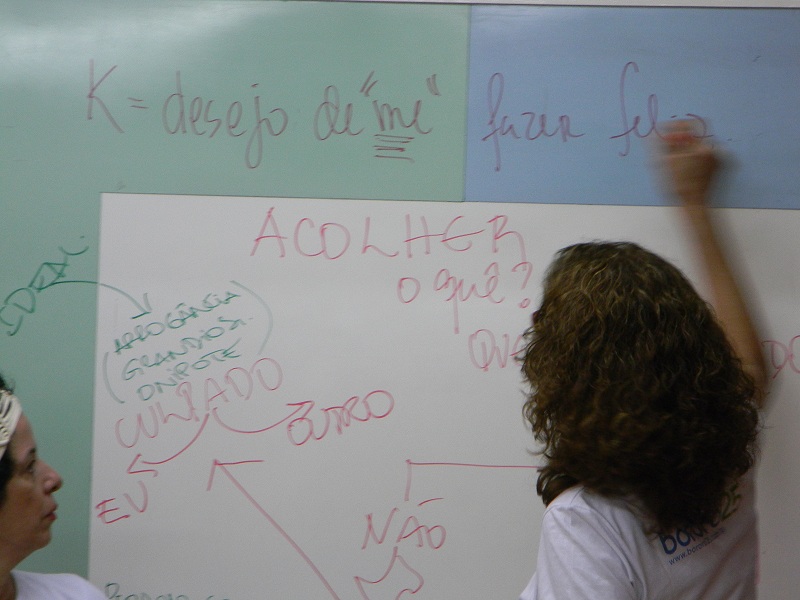 K = desejo de "me" fazer feliz.
ACOLHER
o quê?
IDEAL
(ARROGÂNCIA
GRANDIOSI.
ONIPOTE)
CULPADO
OUTRO
EU
NÃO
www.bon